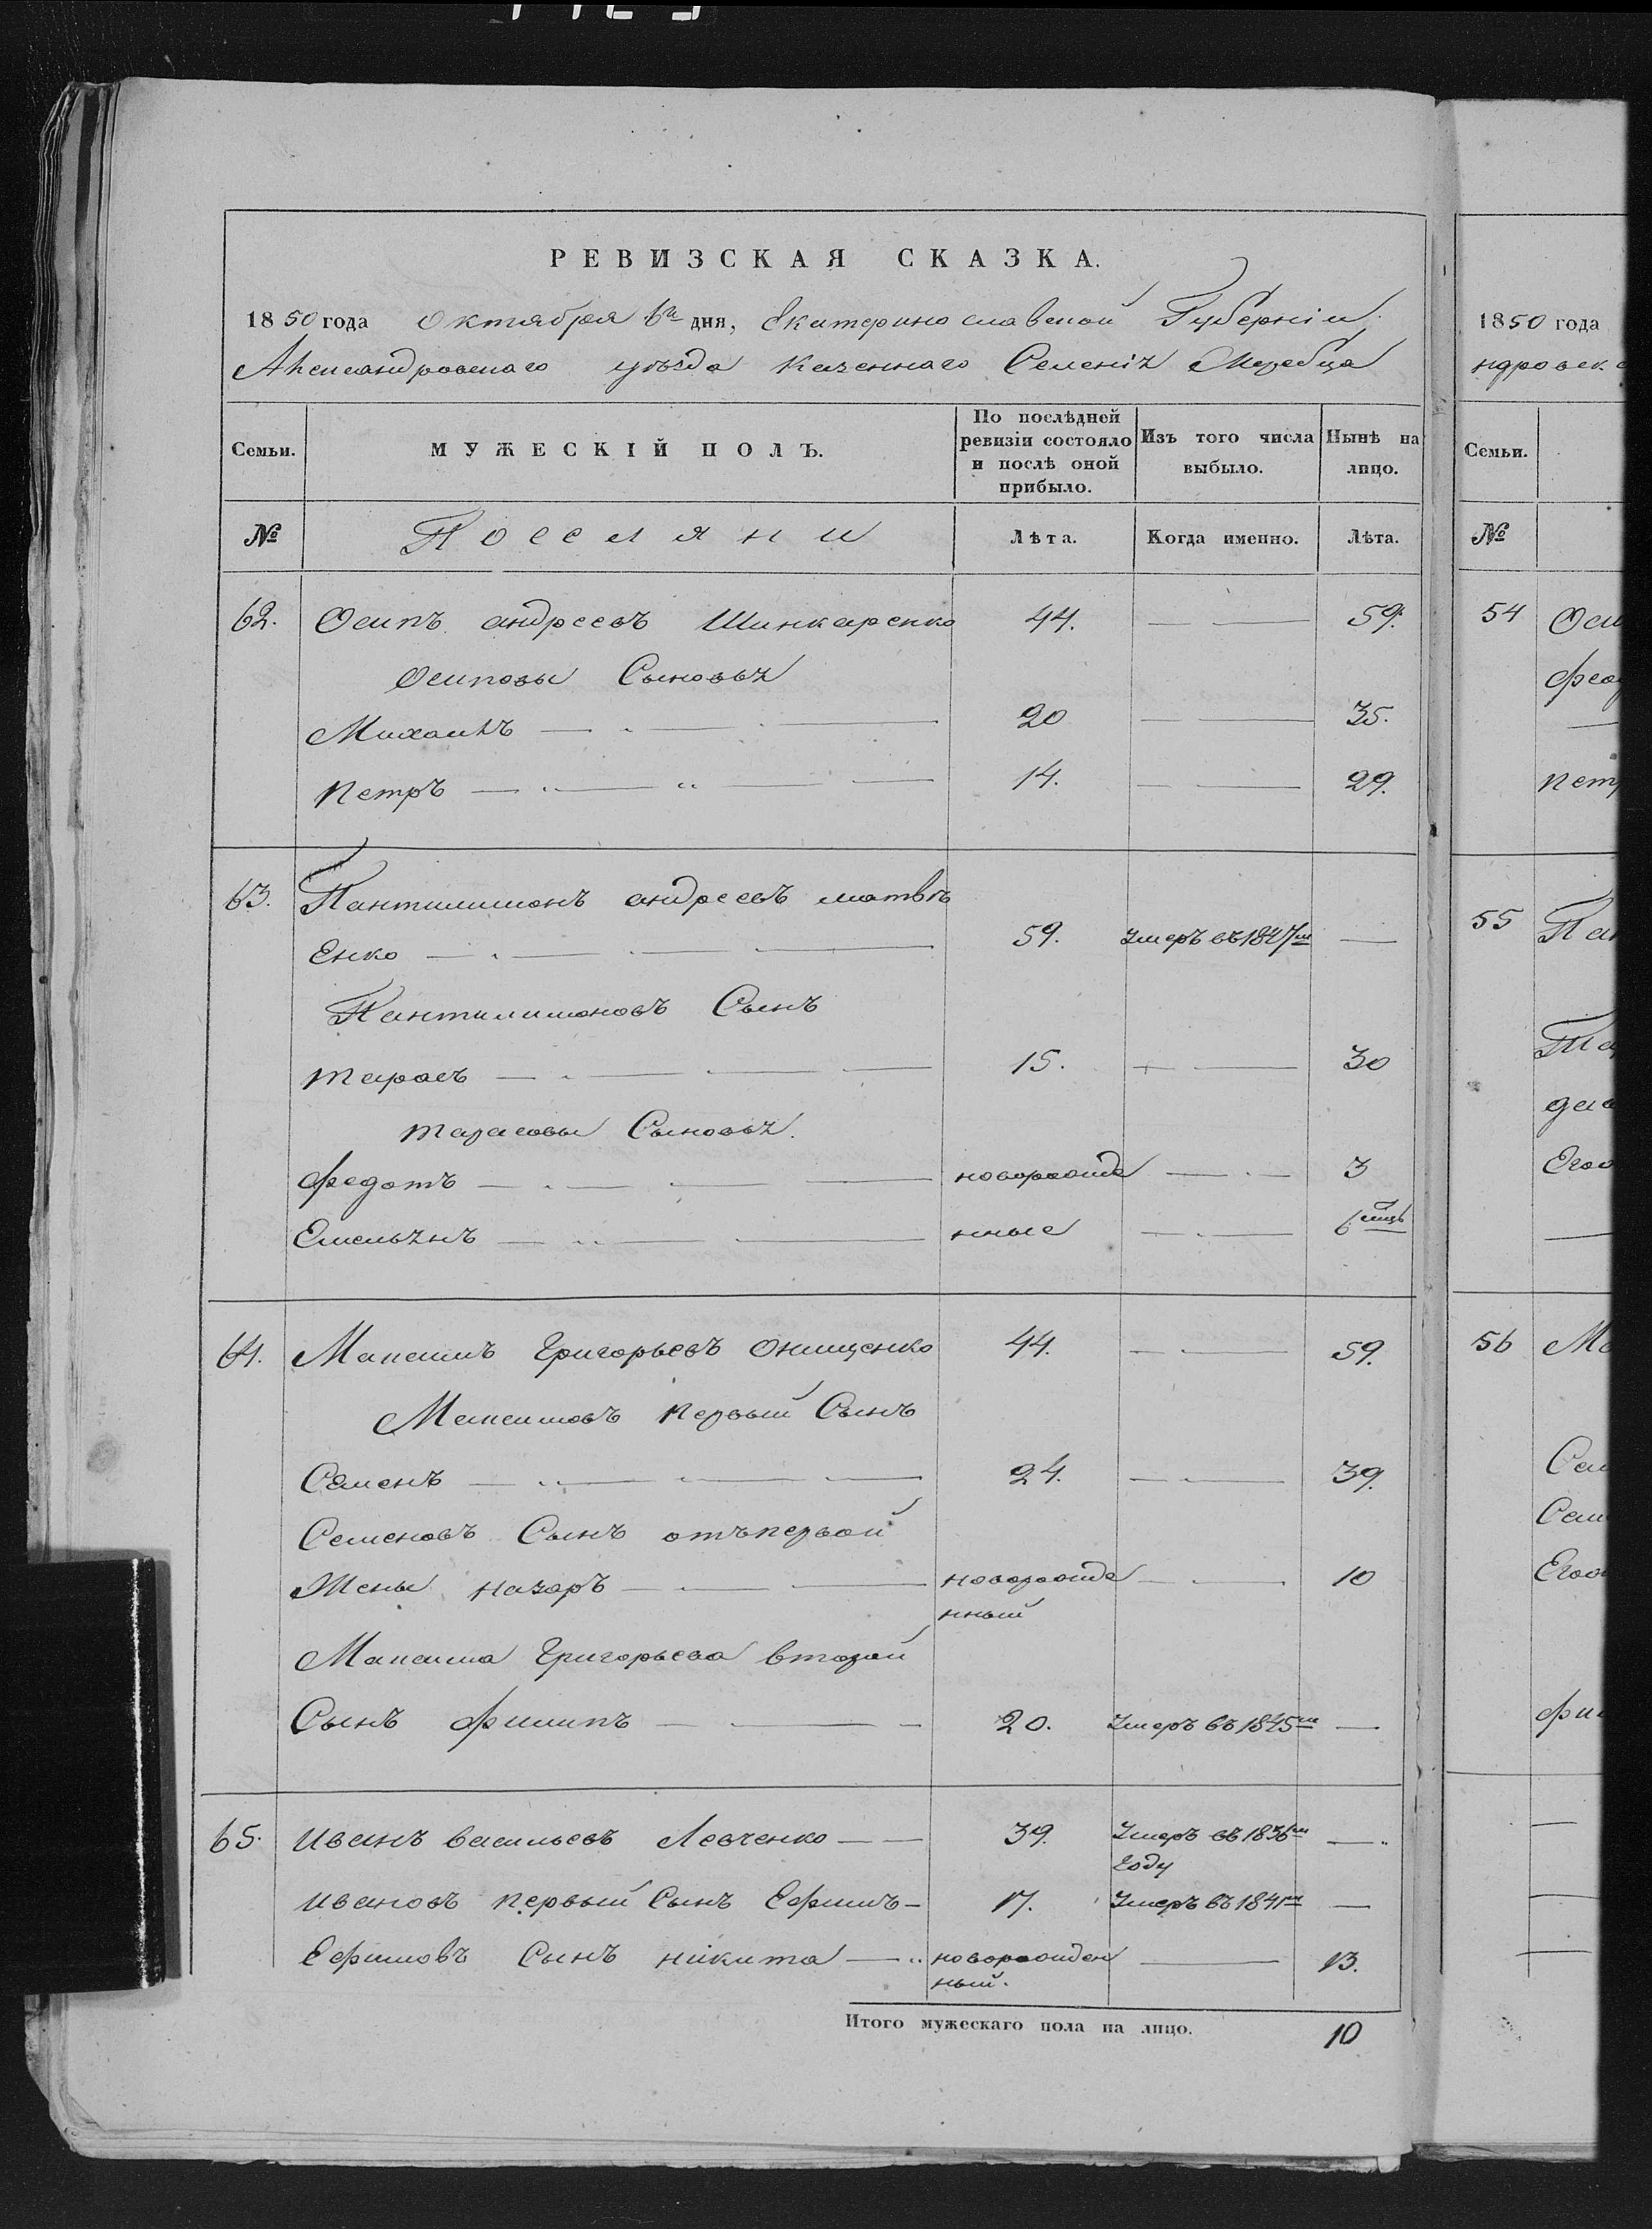 РЕВИЗСКАЯ СКАЗКА.
1850 года Октября 6го дня, Екатеринославской Губерніи
Александровскаго уѣзда казеннаго Селенія Жеребца
Семьи. МУЖЕСКІЙ ПОЛЪ. По послѣдней ревизіи состояло и послѣ оной прибыло. Изъ того числа выбыло. Нынѣ на лицо.
№ Поселяни Лѣта. Когда именно. Лѣта.
62. Осипъ андреевъ Шинкаренко 44. 59.
Осиповы Сыновья
Михаилъ 20 35.
Петръ 14. 29.
63. Пантилимонъ андреевъ матвѣ
Енко 59. Умеръ въ 1847м
Пантилимоновъ Сынъ
Тарасъ 15. 30
Тарасовы Сыновья.
Федотъ новорожде 3
Емельянъ нные 6 мцъ
64. Максимъ Григорьевъ Онищенко 44. 59.
Максимовъ Первый Сынъ
Семенъ 24. 39.
Семеновъ Сынъ отъ первой
Жены Назаръ новорожде 10
нный
Максима Григорьева второй
Сынъ Филипъ 20. Умеръ въ 1845м
65. Иванъ васильевъ Левченко 39. Умеръ въ 1836м
Году
Ивановъ Первый Сынъ Ефимъ 17. Умеръ въ 1841м
Ефимовъ Сынъ Никита новорожден 13.
ный.
Итого мужескаго пола на лицо. 10
1850 года
ндровск
Семьи.
№
54 Оси
Фео
Петр
55 Пан
Та
Его
56 Ма
Сем
Сем
Его
Фи